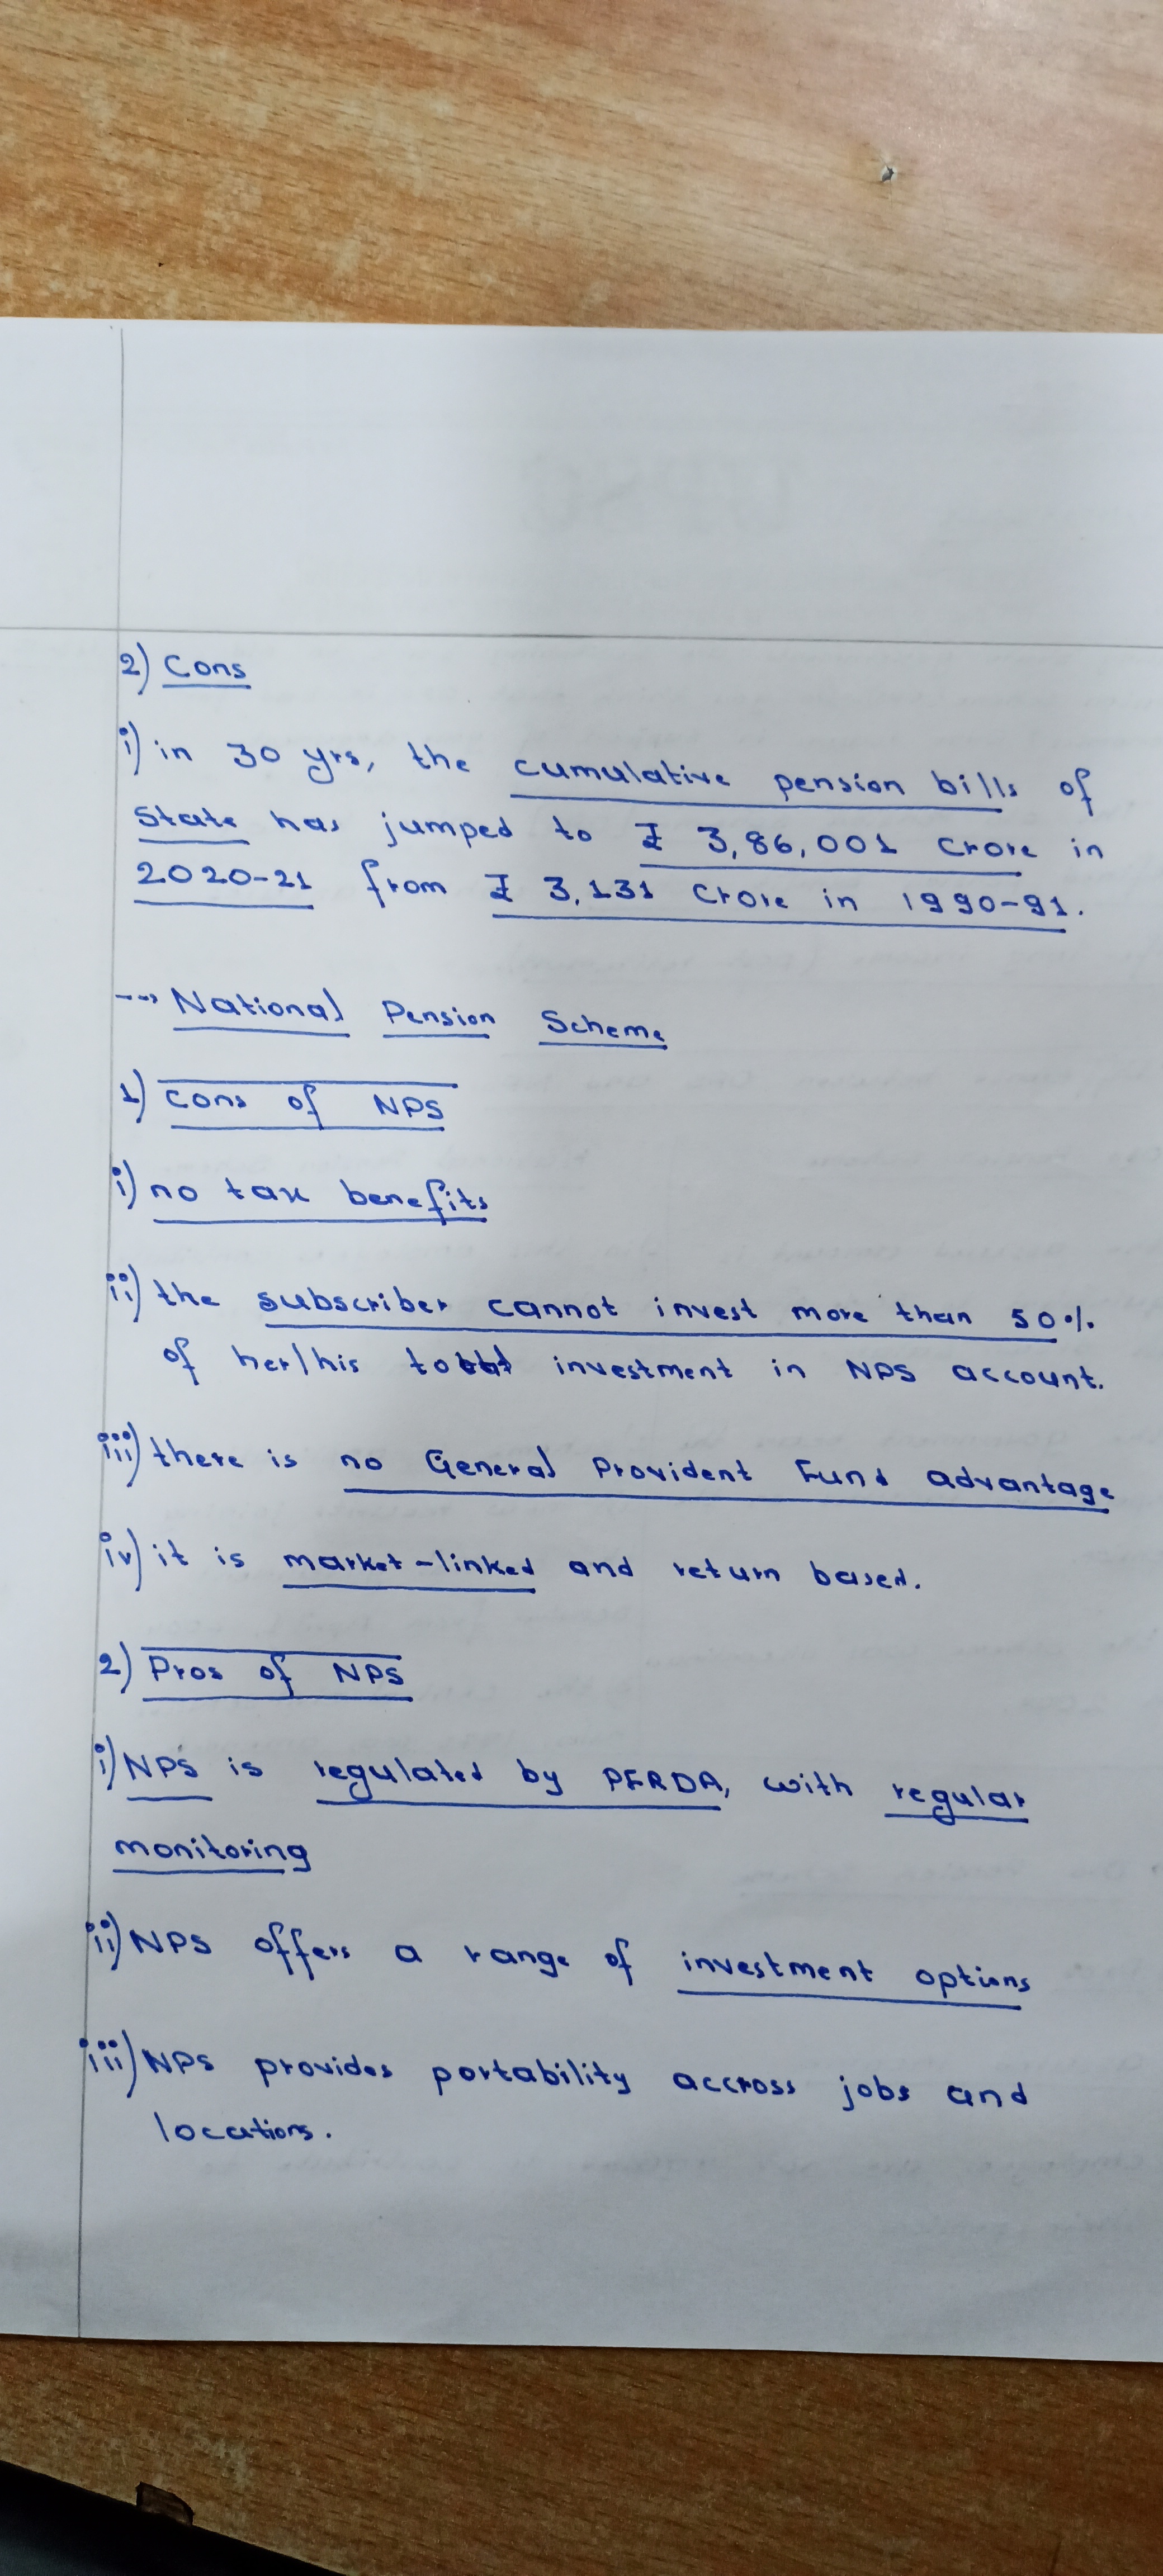 2) Cons
i) in 30 yrs, the cumulative pension bills of
State has jumped to ₹ 3,86,001 crore in
2020-21 from ₹ 3,131 Crore in 1990-91.
--→ National Pension Scheme
1) Cons of NPS
i) no tax benefits
ii) the subscriber cannot invest more than 50%
of her/his investment in NPS account.
iii) there is no General Provident Fund advantage
iv) it is market-linked and return based.
2) Pros of NPS
i) NPS is regulated by PFRDA, with regular
monitoring
ii) NPS offers a range of investment options
iii) NPS provides portability accross jobs and
locations.